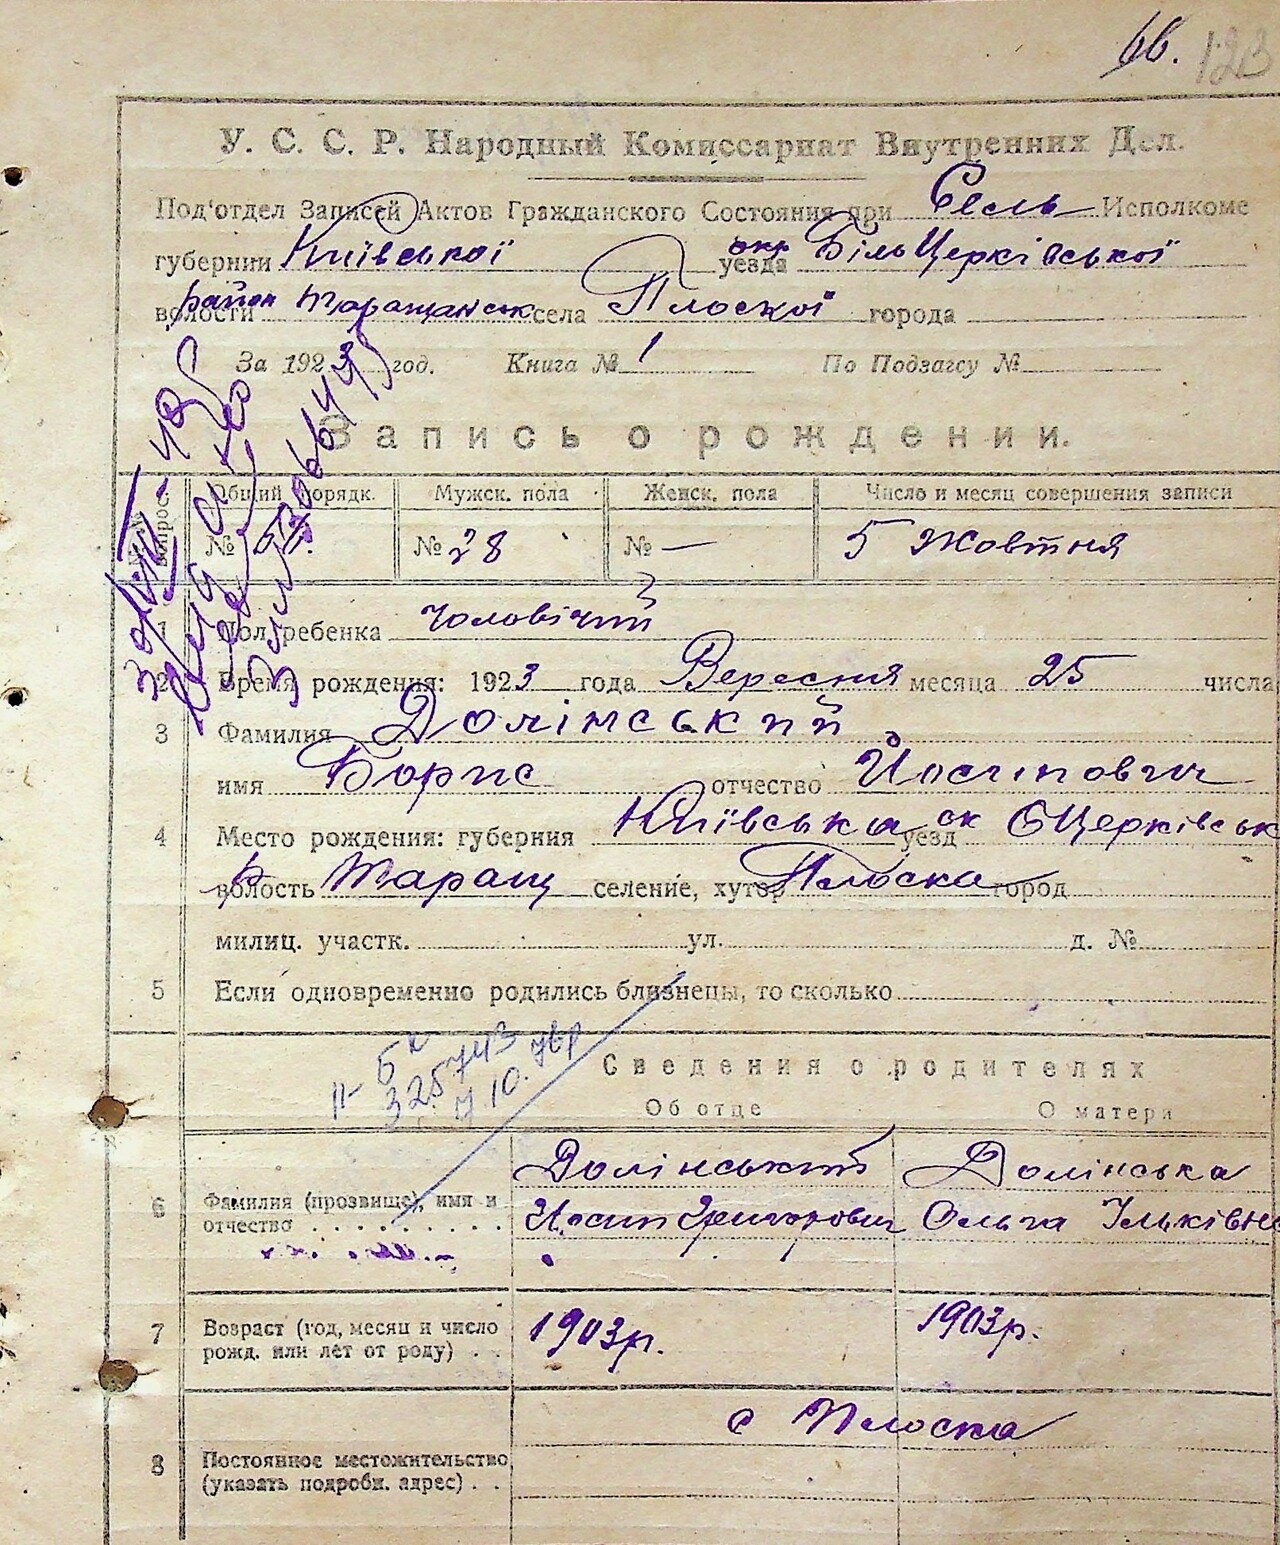 123
У. С. С. Р. Народный Комиссариат Внутренних Дел.
Под'отдел Записей Актов Гражданского Состояния при Сель Исполкоме
губернии Київської уезда окр БілЬЦерківської
волости район Таращанськ села Плоскої города
За 1923 год. Книга № 1 По Подзагсу №
Запись о рождении.
Общий порядк. Мужск. пола Женск. пола Число и месяц совершения записи
№ № 28 № — 5 Жовтня
1 Пол ребенка чоловічий
2 Время рождения: 1923 года Вересня месяца 25 числа
3 Фамилия Долінський
имя Борис отчество Йосипович
4 Место рождения: губерния Київська уезд ок БЦерківськ
волость р Таращ селение, хутор Плоска город
милиц. участк. ул. д. №
5 Если одновременно родились близнецы, то сколько
Сведения о родителях
Об отце О матери
6 Фамилия (прозвище), имя и отчество Долінський Йосип Григорович Долінська Ольга Ільківна
7 Возраст (год, месяц и число рожд. или лет от роду) . . 1903р. 1903р.
с Плоска
8 Постоянное местожительство
(указать подробн. адрес) . .